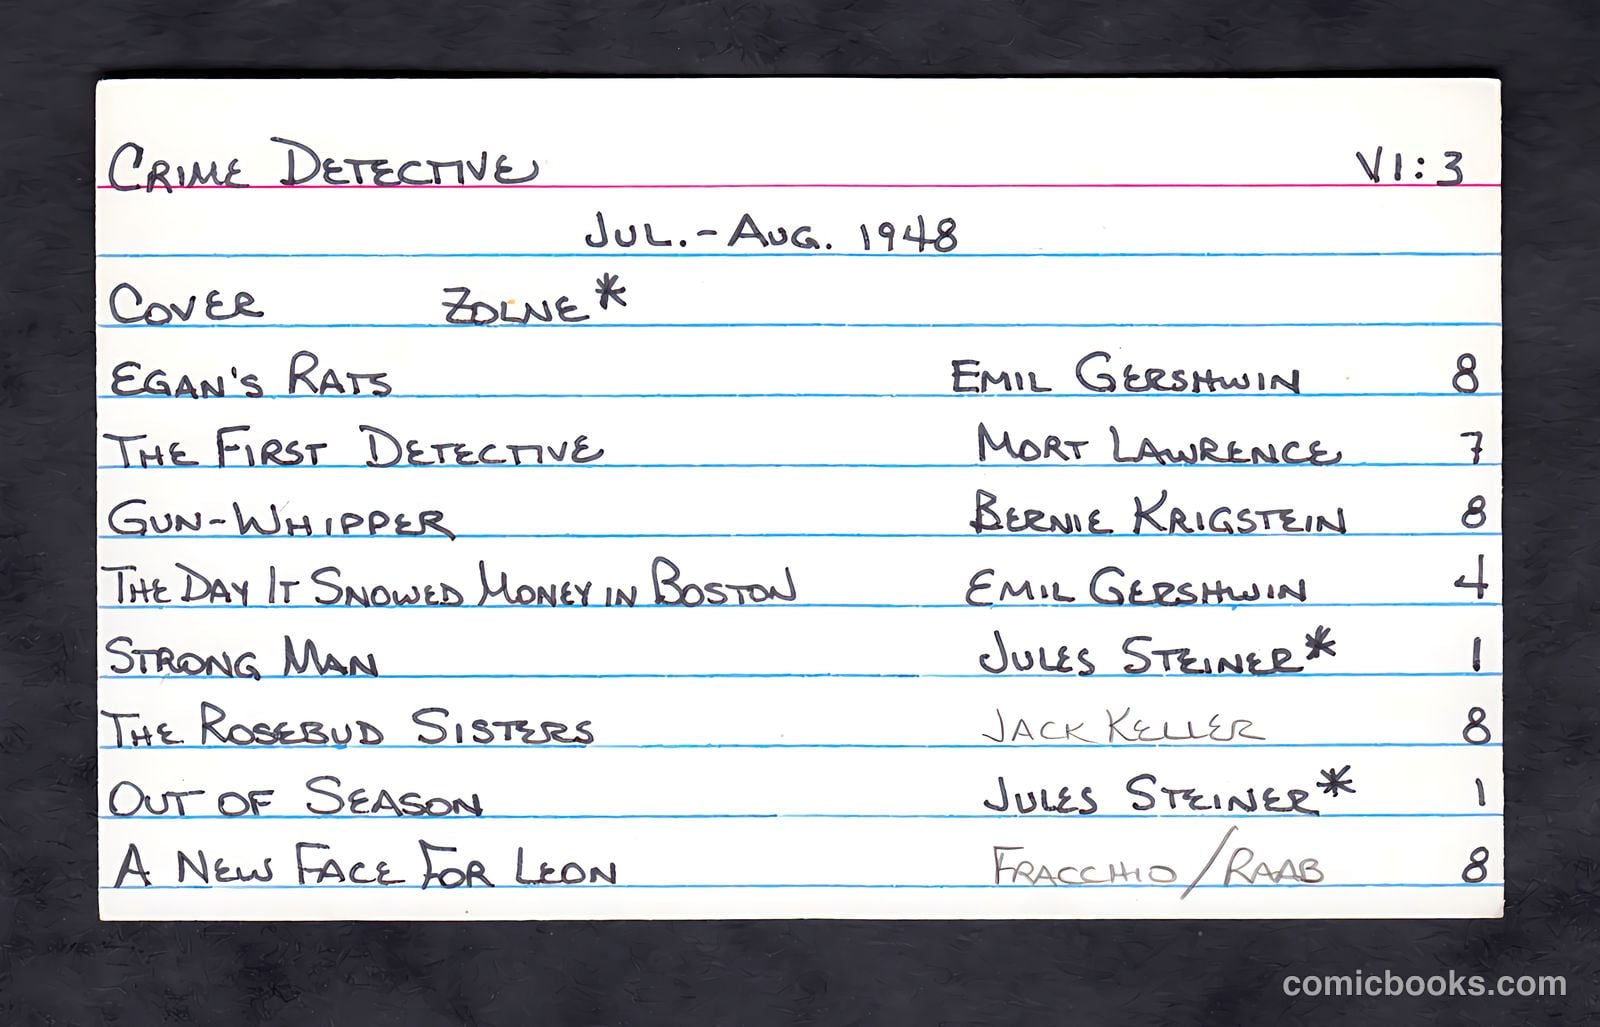 CRIME DETECTIVE V1:3
JUL.-AUG. 1948
COVER ZOLNE*
EGAN'S RATS EMIL GERSHWIN 8
THE FIRST DETECTIVE MORT LAWRENCE 7
GUN-WHIPPER BERNIE KRIGSTEIN 8
THE DAY IT SNOWED MONEY IN BOSTON EMIL GERSHWIN 4
STRONG MAN JULES STEINER* 1
THE ROSEBUD SISTERS JACK KELLER 8
OUT OF SEASON JULES STEINER* 1
A NEW FACE FOR LEON FRACCHIO/RAAB 8
comicbooks.com